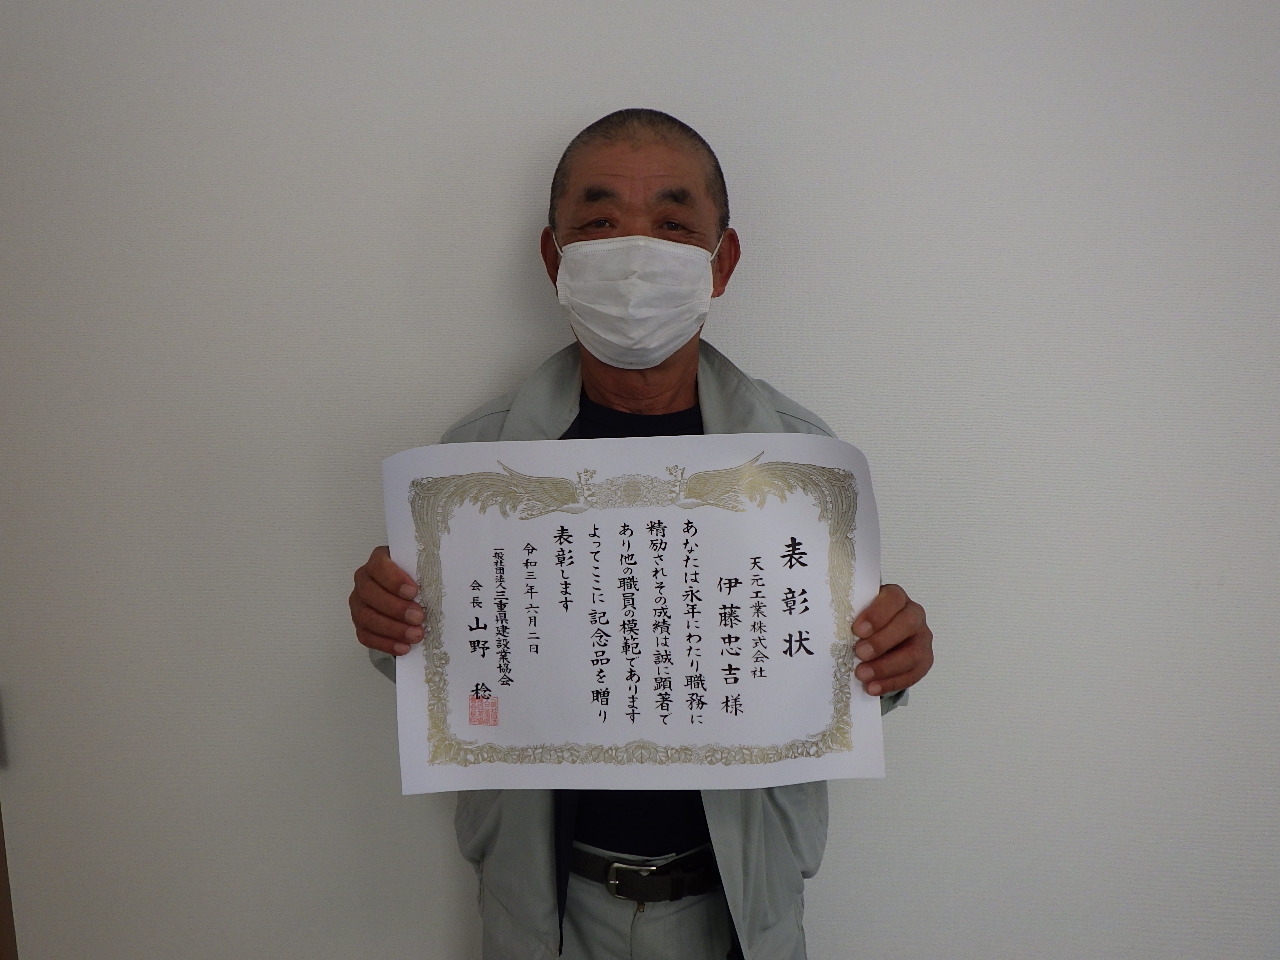 表彰状
天元工業株式会社
伊藤忠吉様
あなたは永年にわたり職務に
精励されその成績は誠に顕著で
あり他の職員の模範であります
よってここに記念品を贈り
表彰します
令和三年六月二日
一般社団法人三重県建設業協会
会長 山野 稔